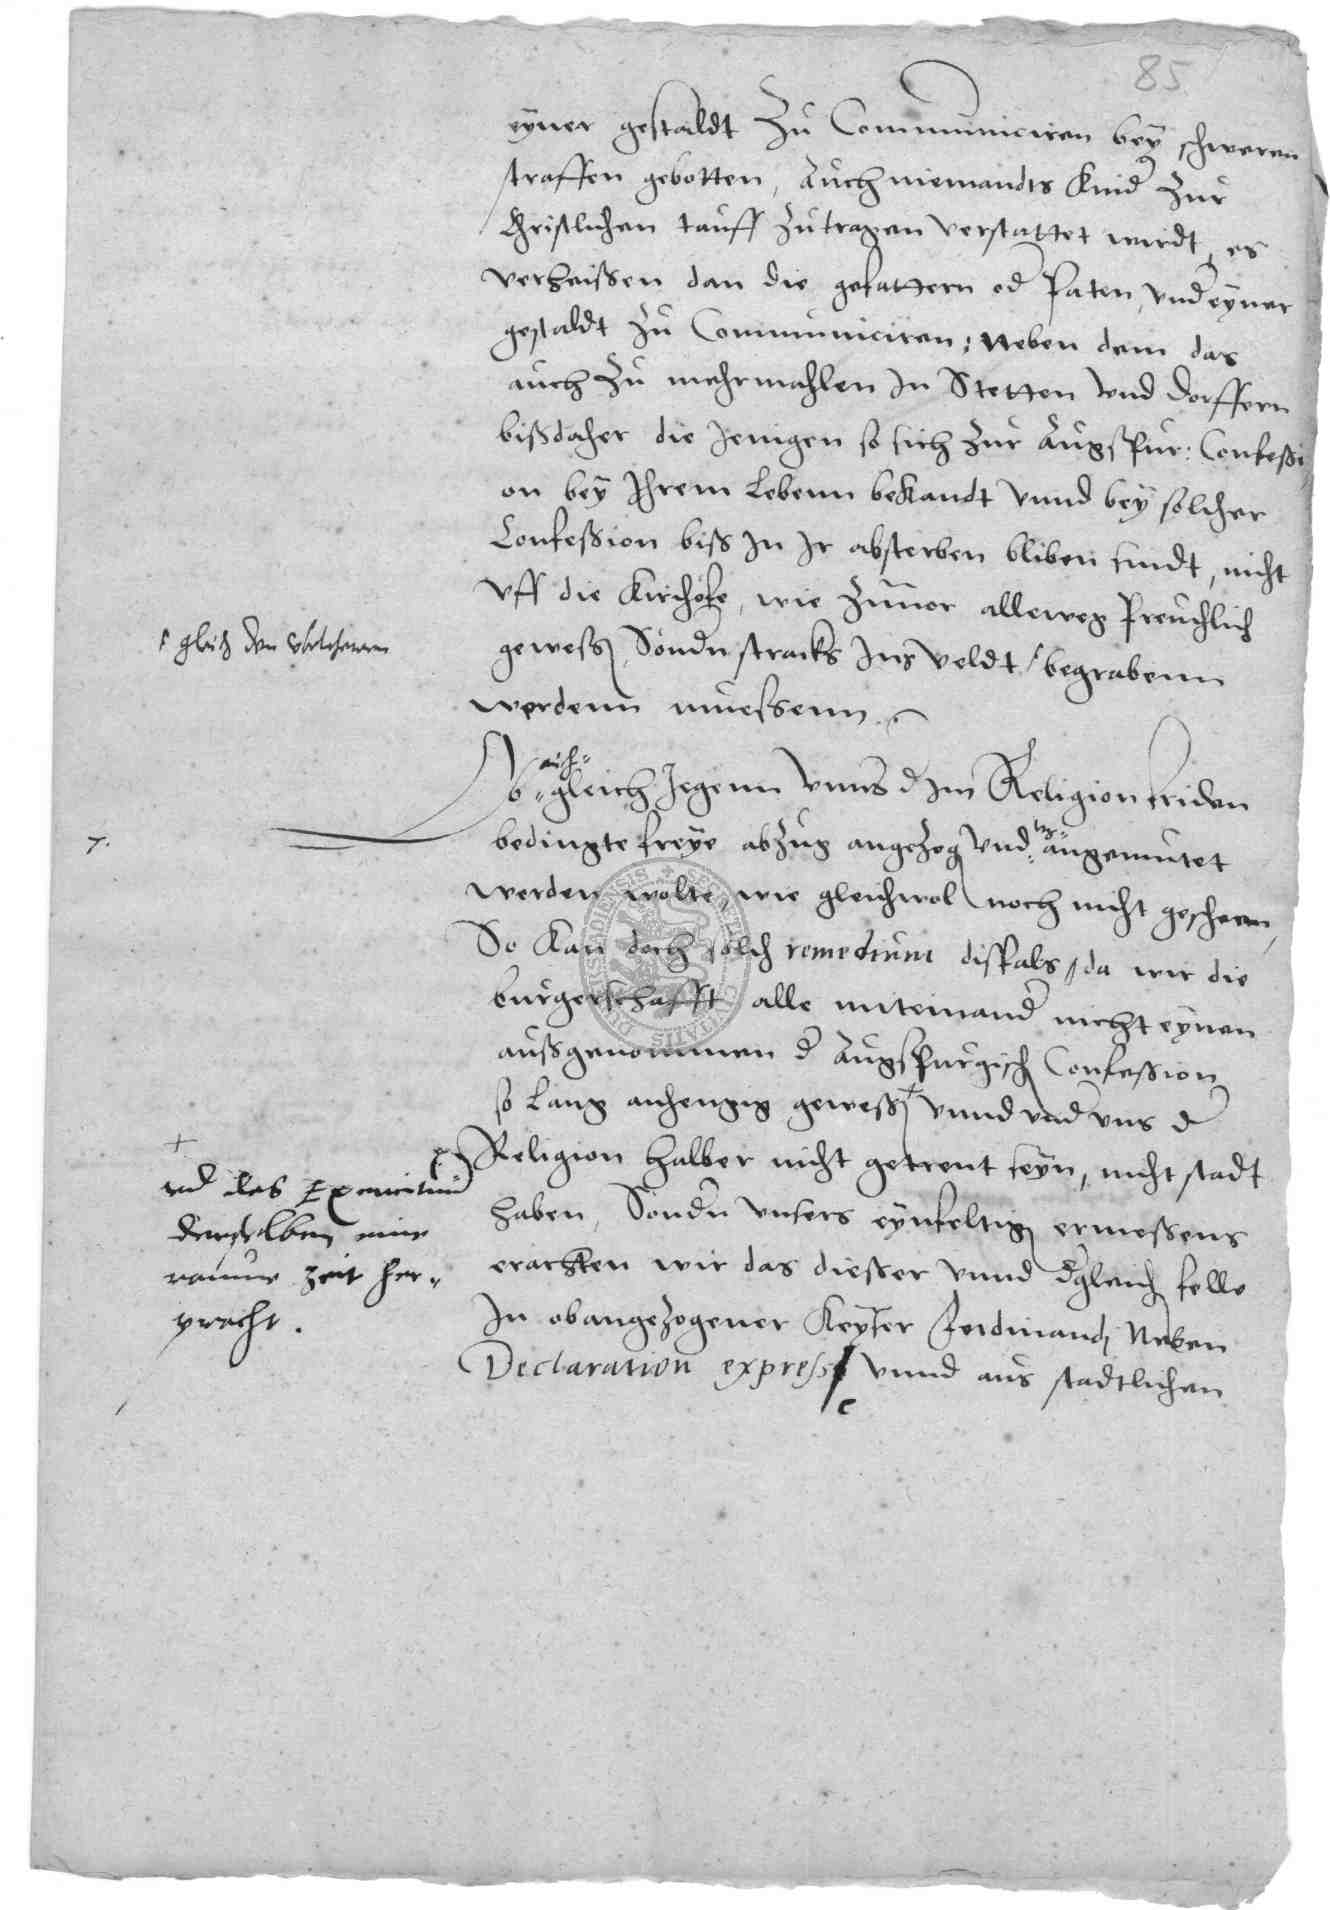 85
eyner gestaldt Zu Communiciren bey schweren
straffen gebotten, Auch niemandts Kind Zur
Christlichen tauff Zutragen verstattet wirdt, es
verheissen dan die gefattern od Paten, und eyner
gestaldt Zu Communiciren, Neben dem das
auch Zu mehrmahlen In Stetten vnd dorffern
bissdaher die Jenigen so sich Zur Augspur: Confessi
on bey Ihrem Lebenn bekandt vnnd bey solcher
Confession biss In Ir absterben bliben sindt, nicht
vff die Kirchofe, wie Zuuor alleweg Preuchlich
gleich den
gewess, Sondn stracks Ins veldt begrabenn
werdenn muessenn.
auch
Ob gleich Jegenn vnns d Im Religion friden
7.
bedingte freye abzug angezog vnd angemutet
werden wolte, wie gleichwol noch nicht gescheen,
So kan doch solch remedium dissfals, da wir die
burgerschafft alle miteinand nicht eynen
aussgenommen d Augspurgisch Confession
so Lang anhengig gewess + vnnd vnd vns d
Religion halber nicht getrent seyn, nicht stadt
+
vnd das Exercitium
derselben eine
raume Zeit her-
pracht.
haben, Sondn vnsers eynfeltig ermessens
erachten wir das diesser vnnd dgleich felle
In obangezogener Keyser Ferdinand Neben
Declaration express vnnd aus stadtlichen